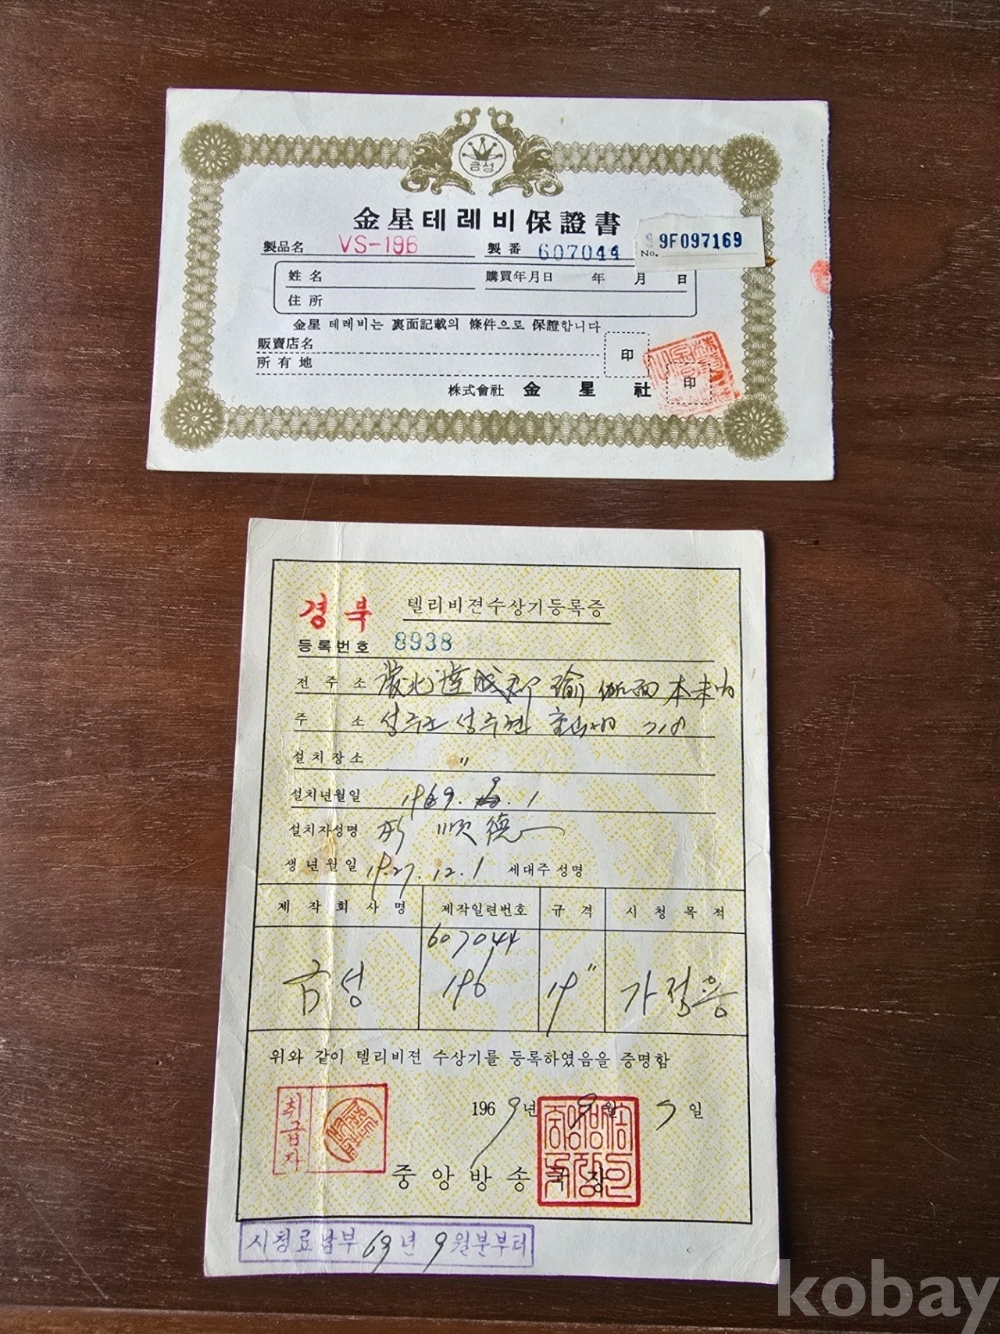 금성
金星테레비保證書
製品名 VS-196 製番 607044 No. 9F097169
姓名 購買年月日 年 月 日
住所
金星 테레비는 裏面記載의 條件으로 保證합니다
販賣店名
印
所有地
株式會社 金星社 印
경북 텔리비젼수상기등록증
등록번호 8938
전주소
주소 성주군 성주면 718
설치장소 〃
설치년월일 1969. 9. 1
설치자성명 順德
생년월일 1927. 12. 1 세대주성명
제작회사명 제작일련번호 규격 시청목적
607044
금성 196 19" 가정용
위와 같이 텔리비젼 수상기를 등록하였음을 증명함
취급자
1969년 9월 5일
중앙방송국장
시청료납부 69년 9월분부터
kobay